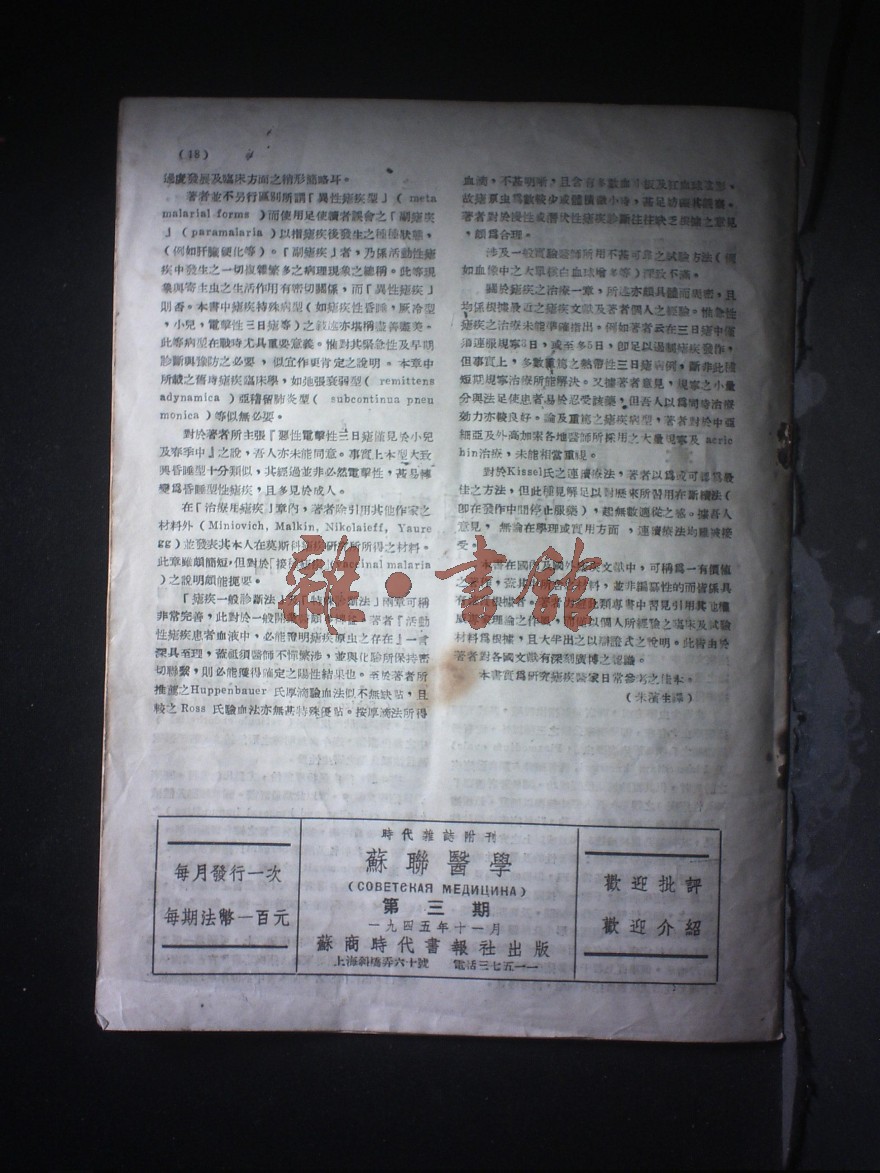 (48)
過度發展及臨床方面之情形簡略耳。
著者並不另行區別所謂「異性瘧疾型」( meta
malarial forms )而使用足使讀者誤會之「副瘧疾
」( paramalaria )以指瘧疾後發生之種種狀態,
(例如肝臟硬化等)。「副瘧疾」者,乃係活動性瘧
疾中發生之一切複雜繁多之病理現象之總稱。此等現
象與寄生虫之生活作用有密切關係,而「異性瘧疾」
則否。本書中瘧疾特殊病型(如瘧疾性昏睡,厥冷型
,小兒,電擊性三日瘧等)之敍述亦堪稱盡善盡美。
此等病型在戰時尤具重要意義。惟對其緊急性及早期
診斷與豫防之必要,似宜作更肯定之說明。本章中
所載之舊時瘧疾臨床學,如弛張衰弱型( remittens
adynamica )亞稽留肺炎型( subcontinua pneu
monica )等似無必要。
對於著者所主張『惡性電擊性三日瘧僅見於小兒
及春季中』之說,吾人亦未能同意。事實上本型大致
與昏睡型十分類似,其經過並非必然電擊性,甚易轉
變爲昏睡型性瘧疾,且多見於成人。
在『治療用瘧疾』章內,著者除引用其他作家之
材料外( Miniovich, Malkin, Nikolaieff, Yaure
gg )並發表其本人在莫斯科瘧疾研究所所得之材料。
此章雖頗簡短,但對於「接種瘧疾」( vaccinal malaria
)之說明頗能扼要。
「瘧疾一般診斷法」與「特殊診斷法」兩章可稱
非常完善,此對於一般開業醫師
著者『活動
性瘧疾患者血液中,必能證明瘧疾原虫之存在』一言
深具至理,蓋祇須醫師不憚繁涉,並與化驗所保持密
切聯繫,則必能獲得確定之陽性結果也。至於著者所
推薦之Huppenbauer 氏厚滴驗血法似不無缺點,且
較之 Ross 氏驗血法亦無甚特殊優點。按厚滴法所得
血滴,不甚明晰,且含有多數血小板及紅血球
故瘧原虫爲數較少或體積微小時,甚足妨碍其
著者對於慢性或潛伏性瘧疾診斷往往缺乏根據之意見
,頗爲合理。
涉及一般實驗醫師所用不甚可靠之試驗方法(例
如血像中之大單核白血球增多等)深致不滿。
關於瘧疾之治療一章,所述亦頗具體而周密,且
均係根據最近之瘧疾文獻及著者個人之經驗。惟急性
瘧疾之治療未能準確指出。例如著者云在三日瘧中僅
須連服規寗3日,或至多5日,即足以遏制瘧疾發作,
但事實上,多數重篤之熱帶性三日瘧病例,斷非此種
短期規寗治療所能解決。又據著者意見,規寗之小量
分與法足使患者易於忍受該藥,但吾人以爲同時治療
效力亦較良好。論及重篤之瘧疾病型,著者對於中亞
細亞及外高加索各地醫師所採用之大量規寗及 acric
hin治療,未能相當重視。
對於Kissel氏之連續療法,著者以爲或可認爲最
佳之方法,但此種見解足以對歷來所習用在斷續法(
即在發作中間停止服藥),起無數適從之感。據吾人
意見,無論在學理或實用方面,連續療法均難被接
受。
本書在國內及國外瘧疾文獻中,可稱爲一有價值
材料,並非編寫性的而皆係具
此類專書中習見引用其他權
威專家理論之作風,而係以個人所經驗之臨床及試驗
材料爲根據,且大半出之以辯證式之說明。此術由於
著者對各國文獻有深刻廣博之認識。
本書實爲研究瘧疾醫家日常參考之佳本。
(朱濱生譯)
雜·書館
每月發行一次
每期法幣一百元
時代雜誌附刊
蘇聯醫學
(СОВЕТСКАЯ МЕДИЦИНА)
第三期
一九四五年十一月
蘇商時代書報社出版
上海斜橋弄六十號 電話三七五一一
歡迎批評
歡迎介紹